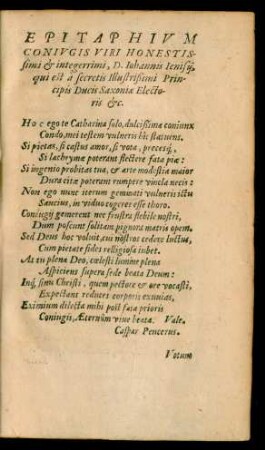 EPITAPHIVM
CONIVGIS VIRI HONESTIS-
simi & integerrimi, D. Iohannis Ienisij,
qui est à secretis Illustrißimi Prin-
cipis Ducis Saxoniæ Electo-
ris &c.
Hoc ego te Catharina solo, dulcißima coniunx
Condo, mei testem vulneris hîc statuens.
Si pietas, si castus amor, si vota, precesq́;,
Si lachrymæ poterant flectere fata piæ:
Si ingenio probitas tua, & arte modestia maior
Dura citæ poterant rumpere vincla necis:
Non ego nunc iterum geminati vulneris ictu
Saucius, in viduo cogerer esse thoro.
Coniugij gemerent nec frustra flebile nostri,
Dum poscunt solitam pignora matris opem.
Sed Deus hoc voluit, cui nostros cedere luctus,
Cum pietate fides relligiosa iubet.
At tu plena Deo, cœlesti lumine plena
Aspiciens supera sede beata Deum:
Inq́; sinu Christi, quem pectore & ore vocasti,
Expectans reduces corporis exuuias,
Eximium dilecta mihi post fata prioris
Coniugis, Æternùm viue beata. Vale.
Caspar Peucerus.
Votum